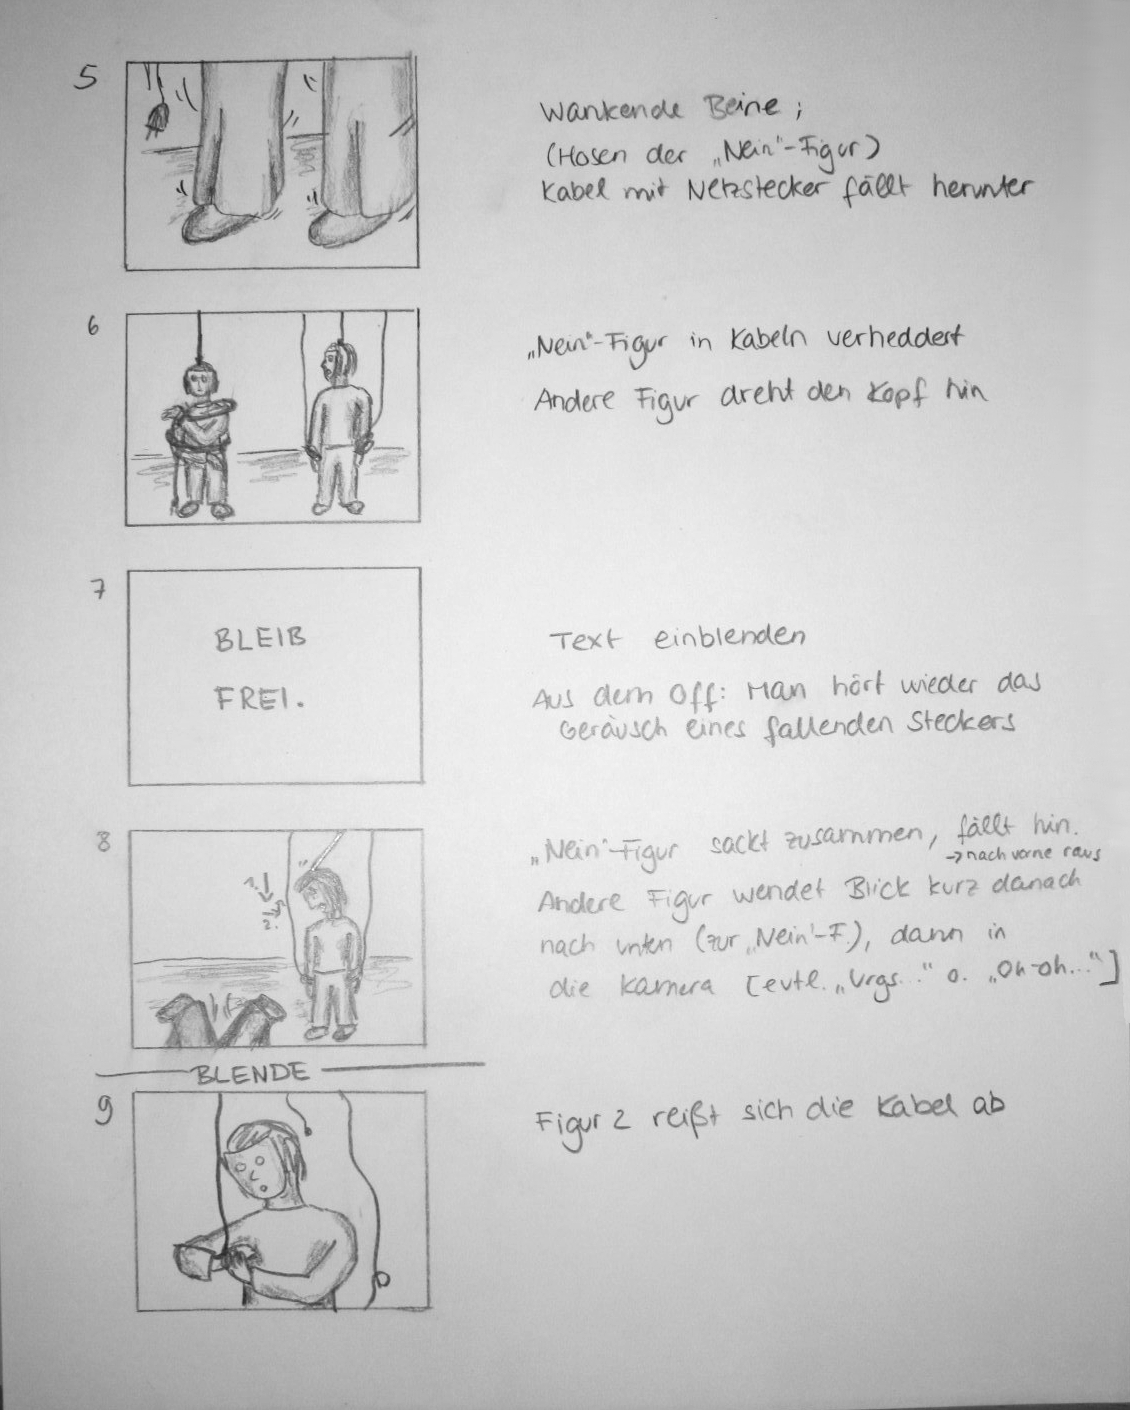 5
Wankende Beine;
(Hosen der „Nein"-Figur)
Kabel mit Netzstecker fällt herunter
6
„Nein"-Figur in Kabeln verheddert
Andere Figur dreht den Kopf hin
7
BLEIB
FREI.
Text einblenden
Aus dem Off: Man hört wieder das
Geräusch eines fallenden Steckers
8
1.
2.
„Nein"-Figur sackt zusammen, fällt hin.
→ nach vorne raus
Andere Figur wendet Blick kurz danach
nach unten (zur „Nein"-F.), dann in
die Kamera [evtl. „Urgs..." o. „Oh-oh..."]
BLENDE
9
Figur 2 reißt sich die Kabel ab